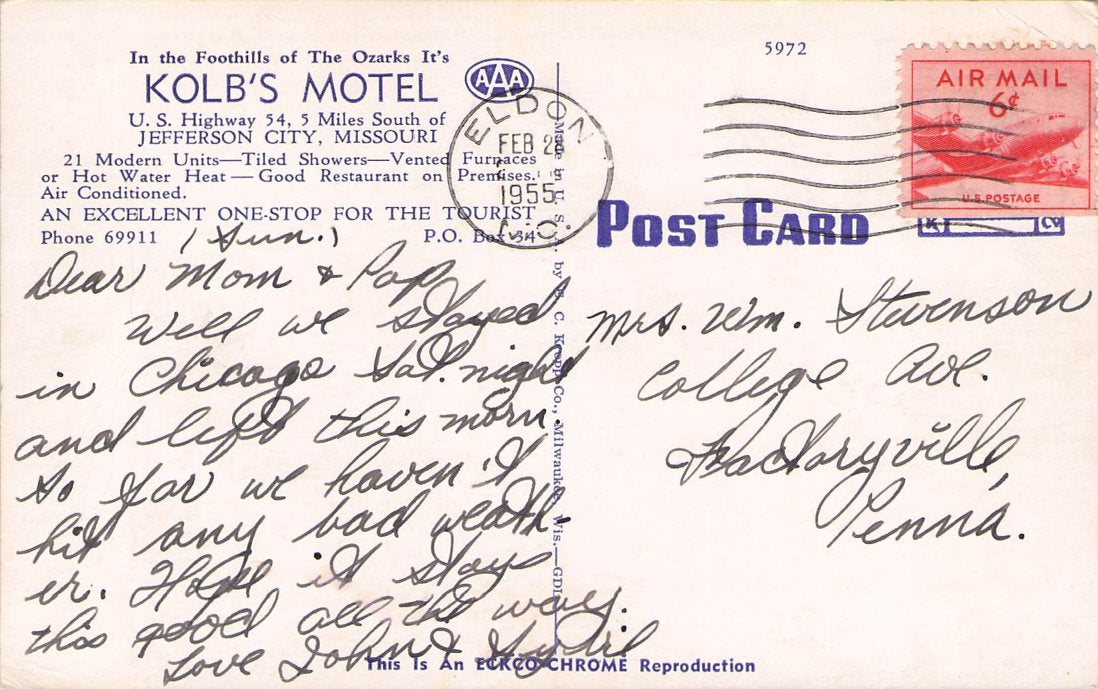 In the Foothills of The Ozarks It's
KOLB'S MOTEL
AAA
U. S. Highway 54, 5 Miles South of
JEFFERSON CITY, MISSOURI
21 Modern Units—Tiled Showers—Vented Furnaces
or Hot Water Heat — Good Restaurant on Premises.
Air Conditioned.
AN EXCELLENT ONE-STOP FOR THE TOURIST
Phone 69911 P.O. Box 34
(Sun.)
Dear Mom & Pop
Well we stayed
in Chicago Sat. night
and left this morn.
So far we haven't
hit any bad weath-
er. Hope it stays
this good all the way.
Love John &
This Is An ECKCO-CHROME Reproduction
Made in U. S. A. by E. C. Kropp Co., Milwaukee, Wis.—GDL
5972
ELDON
FEB 28
1955
MO.
AIR MAIL
6¢
U.S. POSTAGE
POST CARD
K CO
Mrs. Wm. Stevenson
College Ave.
Factoryville,
Penna.